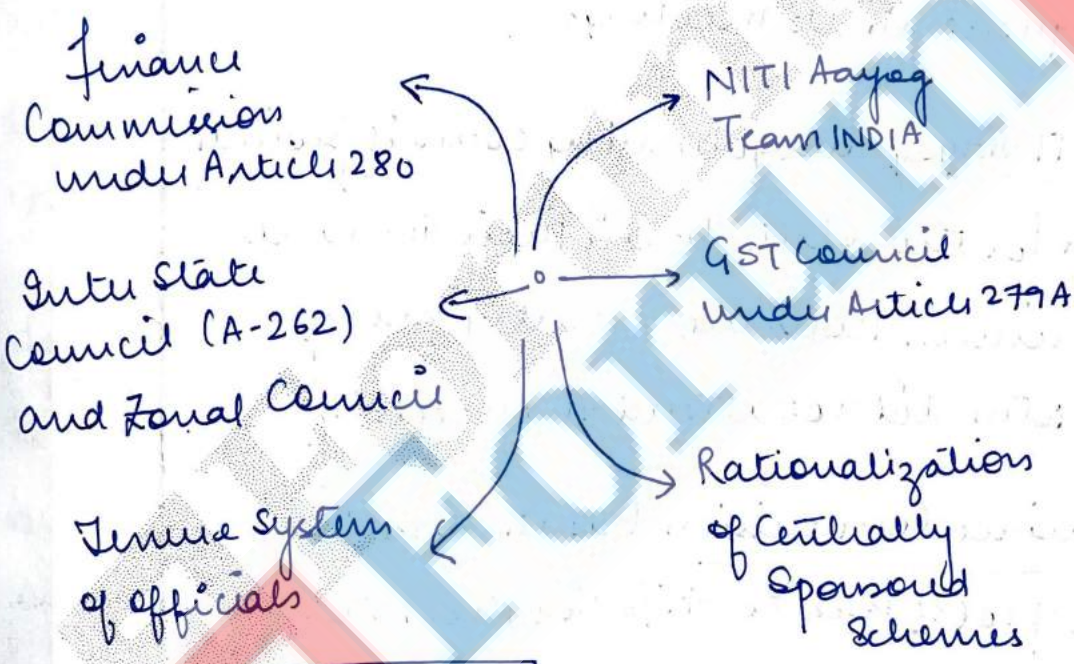 Finance
Commission
under Article 280
NITI Aayog
Team INDIA
Inter State
Council (A-262)
and Zonal Council
GST Council
under Article 279A
Tenure System
of officials
Rationalization
of Centrally
Sponsored
Schemes
Forum